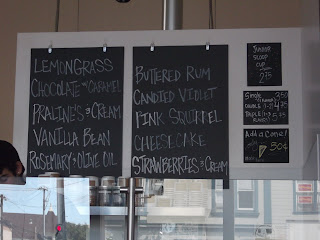 LEMONGRASS
CHOCOLATE W/ CARAMEL
PRALINE'S & CREAM
VANILLA BEAN
ROSEMARY + OLIVE OIL
BUTTERED RUM
CANDIED VIOLET
PINK SQUIRREL
CHEESECAKE
STRAWBERRIES & CREAM
JUNIOR
SCOOP
CUP
2.75
Single
Add a Cone!
50¢